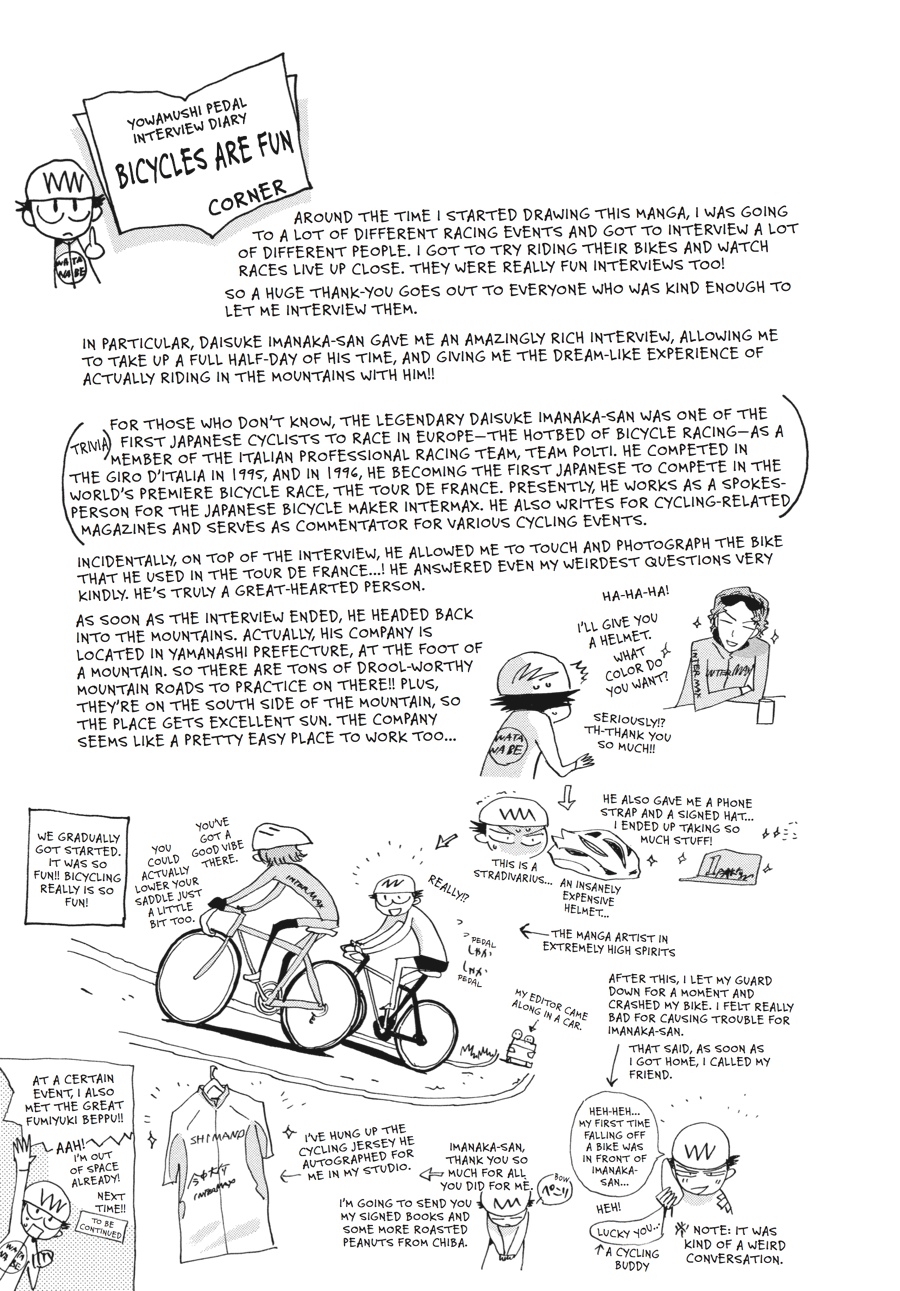 YOWAMUSHI PEDAL
INTERVIEW DIARY
BICYCLES ARE FUN
CORNER
WATA
NABE
AROUND THE TIME I STARTED DRAWING THIS MANGA, I WAS GOING
TO A LOT OF DIFFERENT RACING EVENTS AND GOT TO INTERVIEW A LOT
OF DIFFERENT PEOPLE. I GOT TO TRY RIDING THEIR BIKES AND WATCH
RACES LIVE UP CLOSE. THEY WERE REALLY FUN INTERVIEWS TOO!
SO A HUGE THANK-YOU GOES OUT TO EVERYONE WHO WAS KIND ENOUGH TO
LET ME INTERVIEW THEM.
IN PARTICULAR, DAISUKE IMANAKA-SAN GAVE ME AN AMAZINGLY RICH INTERVIEW, ALLOWING ME
TO TAKE UP A FULL HALF-DAY OF HIS TIME, AND GIVING ME THE DREAM-LIKE EXPERIENCE OF
ACTUALLY RIDING IN THE MOUNTAINS WITH HIM!!
TRIVIA
FOR THOSE WHO DON'T KNOW, THE LEGENDARY DAISUKE IMANAKA-SAN WAS ONE OF THE
FIRST JAPANESE CYCLISTS TO RACE IN EUROPE—THE HOTBED OF BICYCLE RACING—AS A
MEMBER OF THE ITALIAN PROFESSIONAL RACING TEAM, TEAM POLTI. HE COMPETED IN
THE GIRO D'ITALIA IN 1995, AND IN 1996, HE BECOMING THE FIRST JAPANESE TO COMPETE IN THE
WORLD'S PREMIERE BICYCLE RACE, THE TOUR DE FRANCE. PRESENTLY, HE WORKS AS A SPOKES-
PERSON FOR THE JAPANESE BICYCLE MAKER INTERMAX. HE ALSO WRITES FOR CYCLING-RELATED
MAGAZINES AND SERVES AS COMMENTATOR FOR VARIOUS CYCLING EVENTS.
INCIDENTALLY, ON TOP OF THE INTERVIEW, HE ALLOWED ME TO TOUCH AND PHOTOGRAPH THE BIKE
THAT HE USED IN THE TOUR DE FRANCE...! HE ANSWERED EVEN MY WEIRDEST QUESTIONS VERY
KINDLY. HE'S TRULY A GREAT-HEARTED PERSON.
AS SOON AS THE INTERVIEW ENDED, HE HEADED BACK
INTO THE MOUNTAINS. ACTUALLY, HIS COMPANY IS
LOCATED IN YAMANASHI PREFECTURE, AT THE FOOT OF
A MOUNTAIN. SO THERE ARE TONS OF DROOL-WORTHY
MOUNTAIN ROADS TO PRACTICE ON THERE!! PLUS,
THEY'RE ON THE SOUTH SIDE OF THE MOUNTAIN, SO
THE PLACE GETS EXCELLENT SUN. THE COMPANY
SEEMS LIKE A PRETTY EASY PLACE TO WORK TOO...
HA-HA-HA!
I'LL GIVE YOU
A HELMET.
WHAT
COLOR DO
YOU WANT?
INTERMAX
INTERMAX
SERIOUSLY!?
TH-THANK YOU
SO MUCH!!
WATA
NABE
HE ALSO GAVE ME A PHONE
STRAP AND A SIGNED HAT...
I ENDED UP TAKING SO
MUCH STUFF!
THIS IS A
STRADIVARIUS...
AN INSANELY
EXPENSIVE
HELMET...
WE GRADUALLY
GOT STARTED.
IT WAS SO
FUN!! BICYCLING
REALLY IS SO
FUN!
YOU'VE
GOT A
GOOD VIBE
THERE.
YOU
COULD
ACTUALLY
LOWER YOUR
SADDLE JUST
A LITTLE
BIT TOO.
INTERMAX
REALLY!?
THE MANGA ARTIST IN
EXTREMELY HIGH SPIRITS
PEDAL
しゃか
しゃか
PEDAL
MY EDITOR CAME
ALONG IN A CAR.
AFTER THIS, I LET MY GUARD
DOWN FOR A MOMENT AND
CRASHED MY BIKE. I FELT REALLY
BAD FOR CAUSING TROUBLE FOR
IMANAKA-SAN.
THAT SAID, AS SOON AS
I GOT HOME, I CALLED MY
FRIEND.
HEH-HEH...
MY FIRST TIME
FALLING OFF
A BIKE WAS
IN FRONT OF
IMANAKA-
SAN...
HEH!
LUCKY YOU...
A CYCLING
BUDDY
NOTE: IT WAS
KIND OF A WEIRD
CONVERSATION.
IMANAKA-SAN,
THANK YOU SO
MUCH FOR ALL
YOU DID FOR ME.
BOW
ぺこり
I'M GOING TO SEND YOU
MY SIGNED BOOKS AND
SOME MORE ROASTED
PEANUTS FROM CHIBA.
I'VE HUNG UP THE
CYCLING JERSEY HE
AUTOGRAPHED FOR
ME IN MY STUDIO.
SHIMANO
INTERMAX
AT A CERTAIN
EVENT, I ALSO
MET THE GREAT
FUMIYUKI BEPPU!!
AAH!
I'M OUT
OF SPACE
ALREADY!
NEXT
TIME!!
TO BE
CONTINUED
WATA
NABE